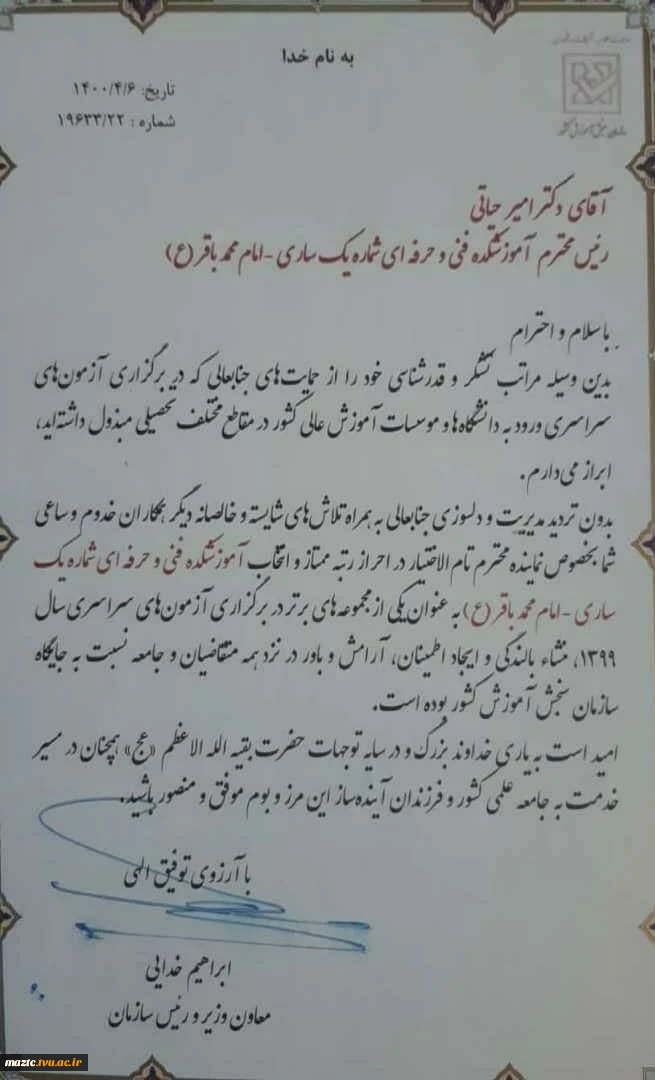 به نام خدا
تاریخ: ۱۴۰۰/۴/۶
شماره: ۱۹۶۳۳/۲۲
سازمان سنجش آموزش کشور
آقای دکتر امیر حیاتی
رئیس محترم آموزشکده فنی و حرفه ای شماره یک ساری - امام محمد باقر (ع)
با سلام و احترام
بدین وسیله مراتب تشکر و قدرشناسی خود را از حمایت‌های جنابعالی که در برگزاری آزمون‌های
سراسری ورود به دانشگاه‌ها و موسسات آموزش عالی کشور در مقاطع مختلف تحصیلی مبذول داشته‌اید،
ابراز می‌دارم.
بدون تردید مدیریت و دلسوزی جنابعالی به همراه تلاش‌های شایسته و خالصانه دیگر همکاران خدوم و ساعی
شما بخصوص نماینده محترم تام الاختیار در احراز رتبه ممتاز و انتخاب آموزشکده فنی و حرفه ای شماره یک
ساری - امام محمد باقر (ع) به عنوان یکی از مجموعه‌های برتر در برگزاری آزمون‌های سراسری سال
۱۳۹۹، منشاء بالندگی و ایجاد اطمینان، آرامش و باور در نزد همه متقاضیان و جامعه نسبت به جایگاه
سازمان سنجش آموزش کشور بوده است.
امید است به یاری خداوند بزرگ و در سایه توجهات حضرت بقیه الله الاعظم «عج» همچنان در مسیر
خدمت به جامعه علمی کشور و فرزندان آینده‌ساز این مرز و بوم موفق و منصور باشید.
با آرزوی توفیق الهی
ابراهیم خدایی
معاون وزیر و رئیس سازمان
maztc.tvu.ac.ir